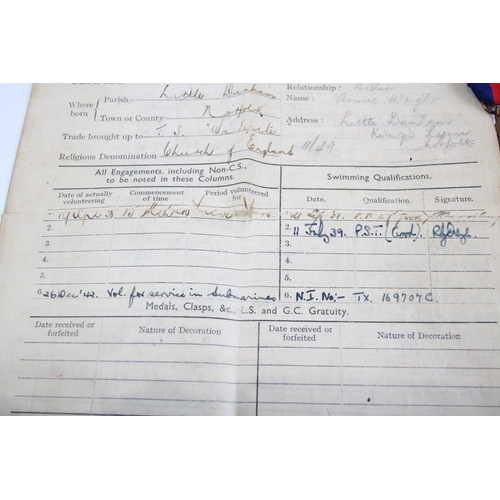 Parish Little Dunham
Where born
Town of County Norfolk
Trade brought up to T. S.
Religious Denomination Church of England
Relationship: Mother
Name: Annie Wright
Address: Little Dunham
King's Lynn
Norfolk
All Engagements, including Non-C.S., to be noted in these Columns.
Date of actually volunteering
Commencement of time
Period volunteered for
Swimming Qualifications.
Date.
Qualification.
Signature.
2. 11 July 39. P.S.T. (Good).
2.
3.
3.
4.
4.
5.
5.
6. 26 Dec '42. Vol. for service in Submarines
6. N.I. No:- TX. 169707C.
Medals, Clasps, &c., L.S. and G.C. Gratuity.
Date received or forfeited
Nature of Decoration
Date received or forfeited
Nature of Decoration